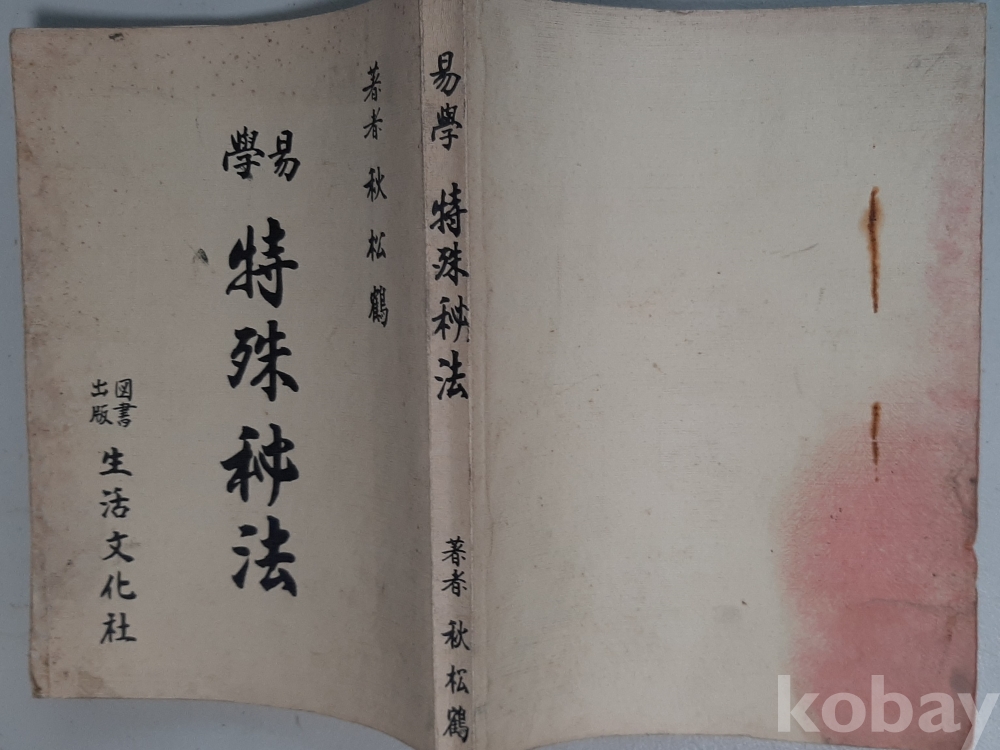 著者 秋松鶴
易學
特殊秘法
圖書
出版
生活文化社
易學 特殊秘法 著者 秋松鶴
kobay